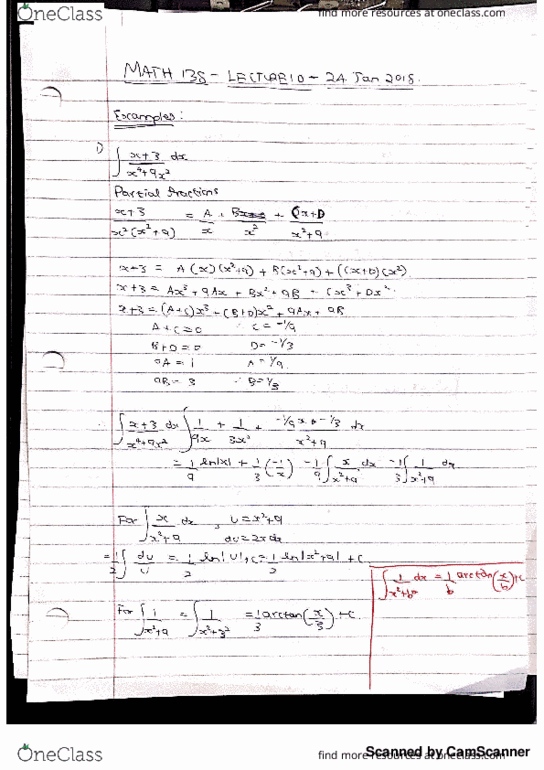 OneClass
find more resources at oneclass.com
MATH 138 - LECTURE 10 - 24 Jan 2018.
Examples:
1) ∫ x+3 / x⁴+9x² dx
Partial fractions
x+3 / x²(x²+9) = A/x + B/x² + Cx+D / x²+9
x+3 = A(x)(x²+9) + B(x²+9) + (Cx+D)(x²)
x+3 = Ax³ + 9Ax + Bx² + 9B + Cx³ + Dx²
x+3 = (A+C)x³ + (B+D)x² + 9Ax + 9B
A+C=0 C = -1/9
B+D=0 D = -1/3
9A = 1 A = 1/9
9B = 3 B = 1/3
∫ x+3 / x⁴+9x² dx ∫ 1/9x + 1/3x² + -1/9x + -1/3 / x²+9 dx
= 1/9 ln|x| + 1/3 (-1/x) -1/9 ∫ x / x²+9 dx -1/3 ∫ 1 / x²+9 dx
For ∫ x / x²+9 dx, U = x²+9
du = 2x dx
= 1/2 ∫ du/U = 1/2 ln|U| + C = 1/2 ln|x²+9| + C
∫ 1 / x²+b² dx = 1/b arctan(x/b) + C
For ∫ 1 / x²+9 = ∫ 1 / x²+3² = 1/3 arctan(x/3) + C
Scanned by CamScanner
OneClass
find more resources at oneclass.com